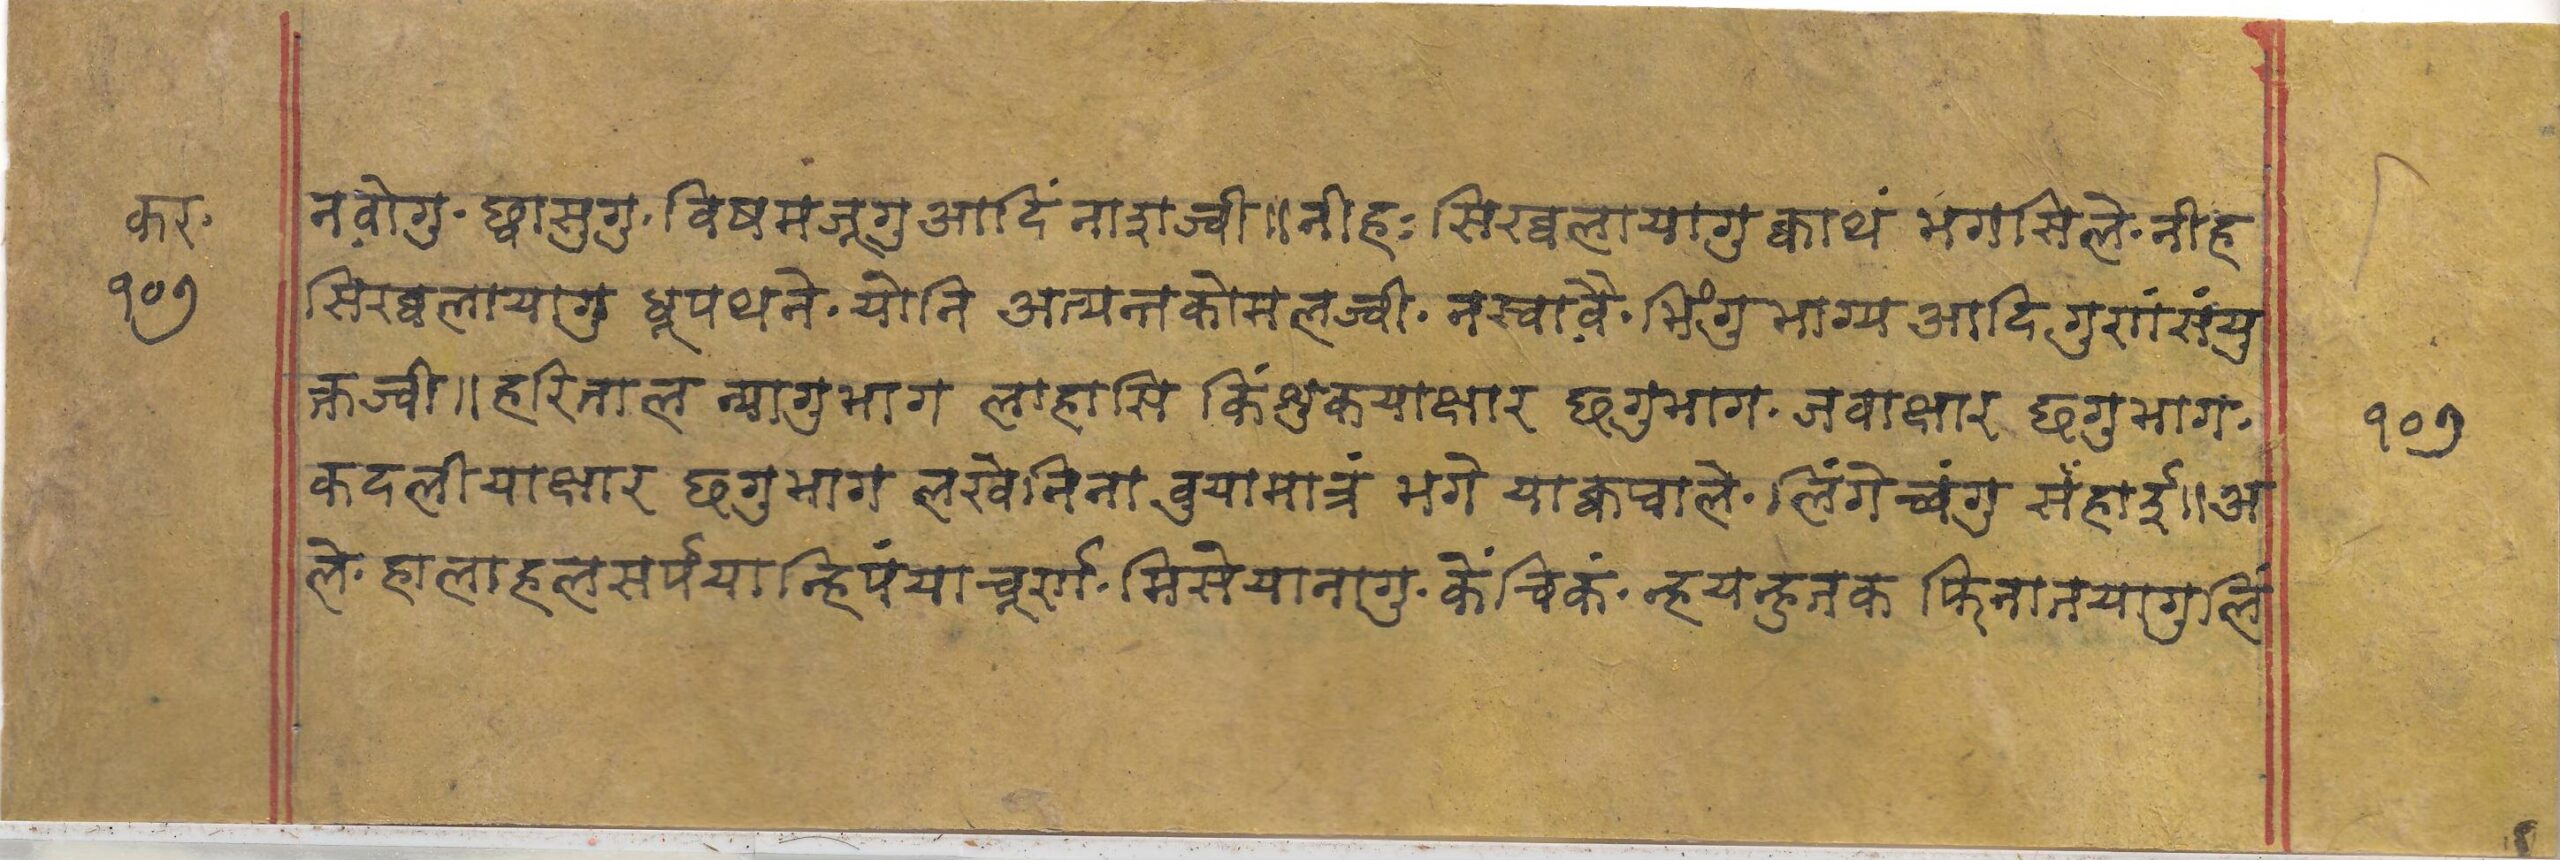 कर॰
१०७
नवोगु॰ छ्वासुगु॰ विषमजूगु आदिं नाशज्वी॥ नीहः सिरख्वलायागु क्वाथं भगसिले॰ नीह
सिरख्वलायागु धूपथने॰ योनि अत्यन्तकोमलज्वी॰ नस्वावै॰ भिंगु भाग्य आदि गुणं संयु
क्तज्वी॥ हरिताल न्यागुभाग लाहासि किंशुकयाक्षार छगुभाग॰ जवाक्षार छगुभाग॰
कदलीयाक्षार छगुभाग लखेनिना वुयामात्रं भगे याक्वप्वाले॰ लिंगेच्वंगु सँहाई॥ अ
ले॰ हालाहलसर्पया न्हिपंया चूर्ण॰ मिसेयानागु॰ केंचिकं॰ न्हयन्हुतक फिनातयागु लिं
१०७